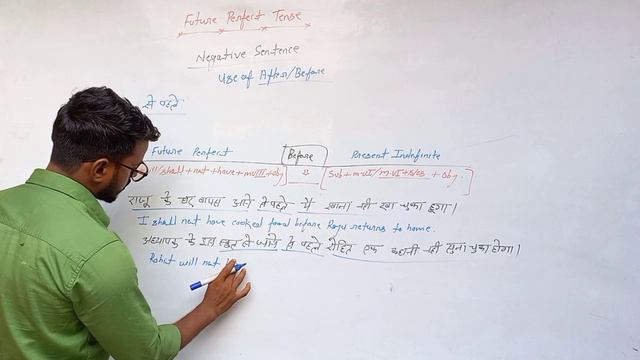 Future Perfect Tense
Negative Sentence
Use of After/Before
से पहले
Future Perfect Before Present Indefinite
ll/shall+not+have+mvIII+obj ⇓ Sub+m.vI/m.vI+s/es + Obj.
राजू के घर वापस आने से पहले मैं खाना नहीं चुका हूंगा।
I shall not have cooked food before Raju returns to home.
अध्यापक के से पहले रोहित एक कहानी नहीं सुना चुका होगा।
Rohit will not